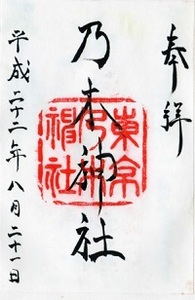 奉拝
乃木神社
東京乃木神社
平成二十二年八月二十一日